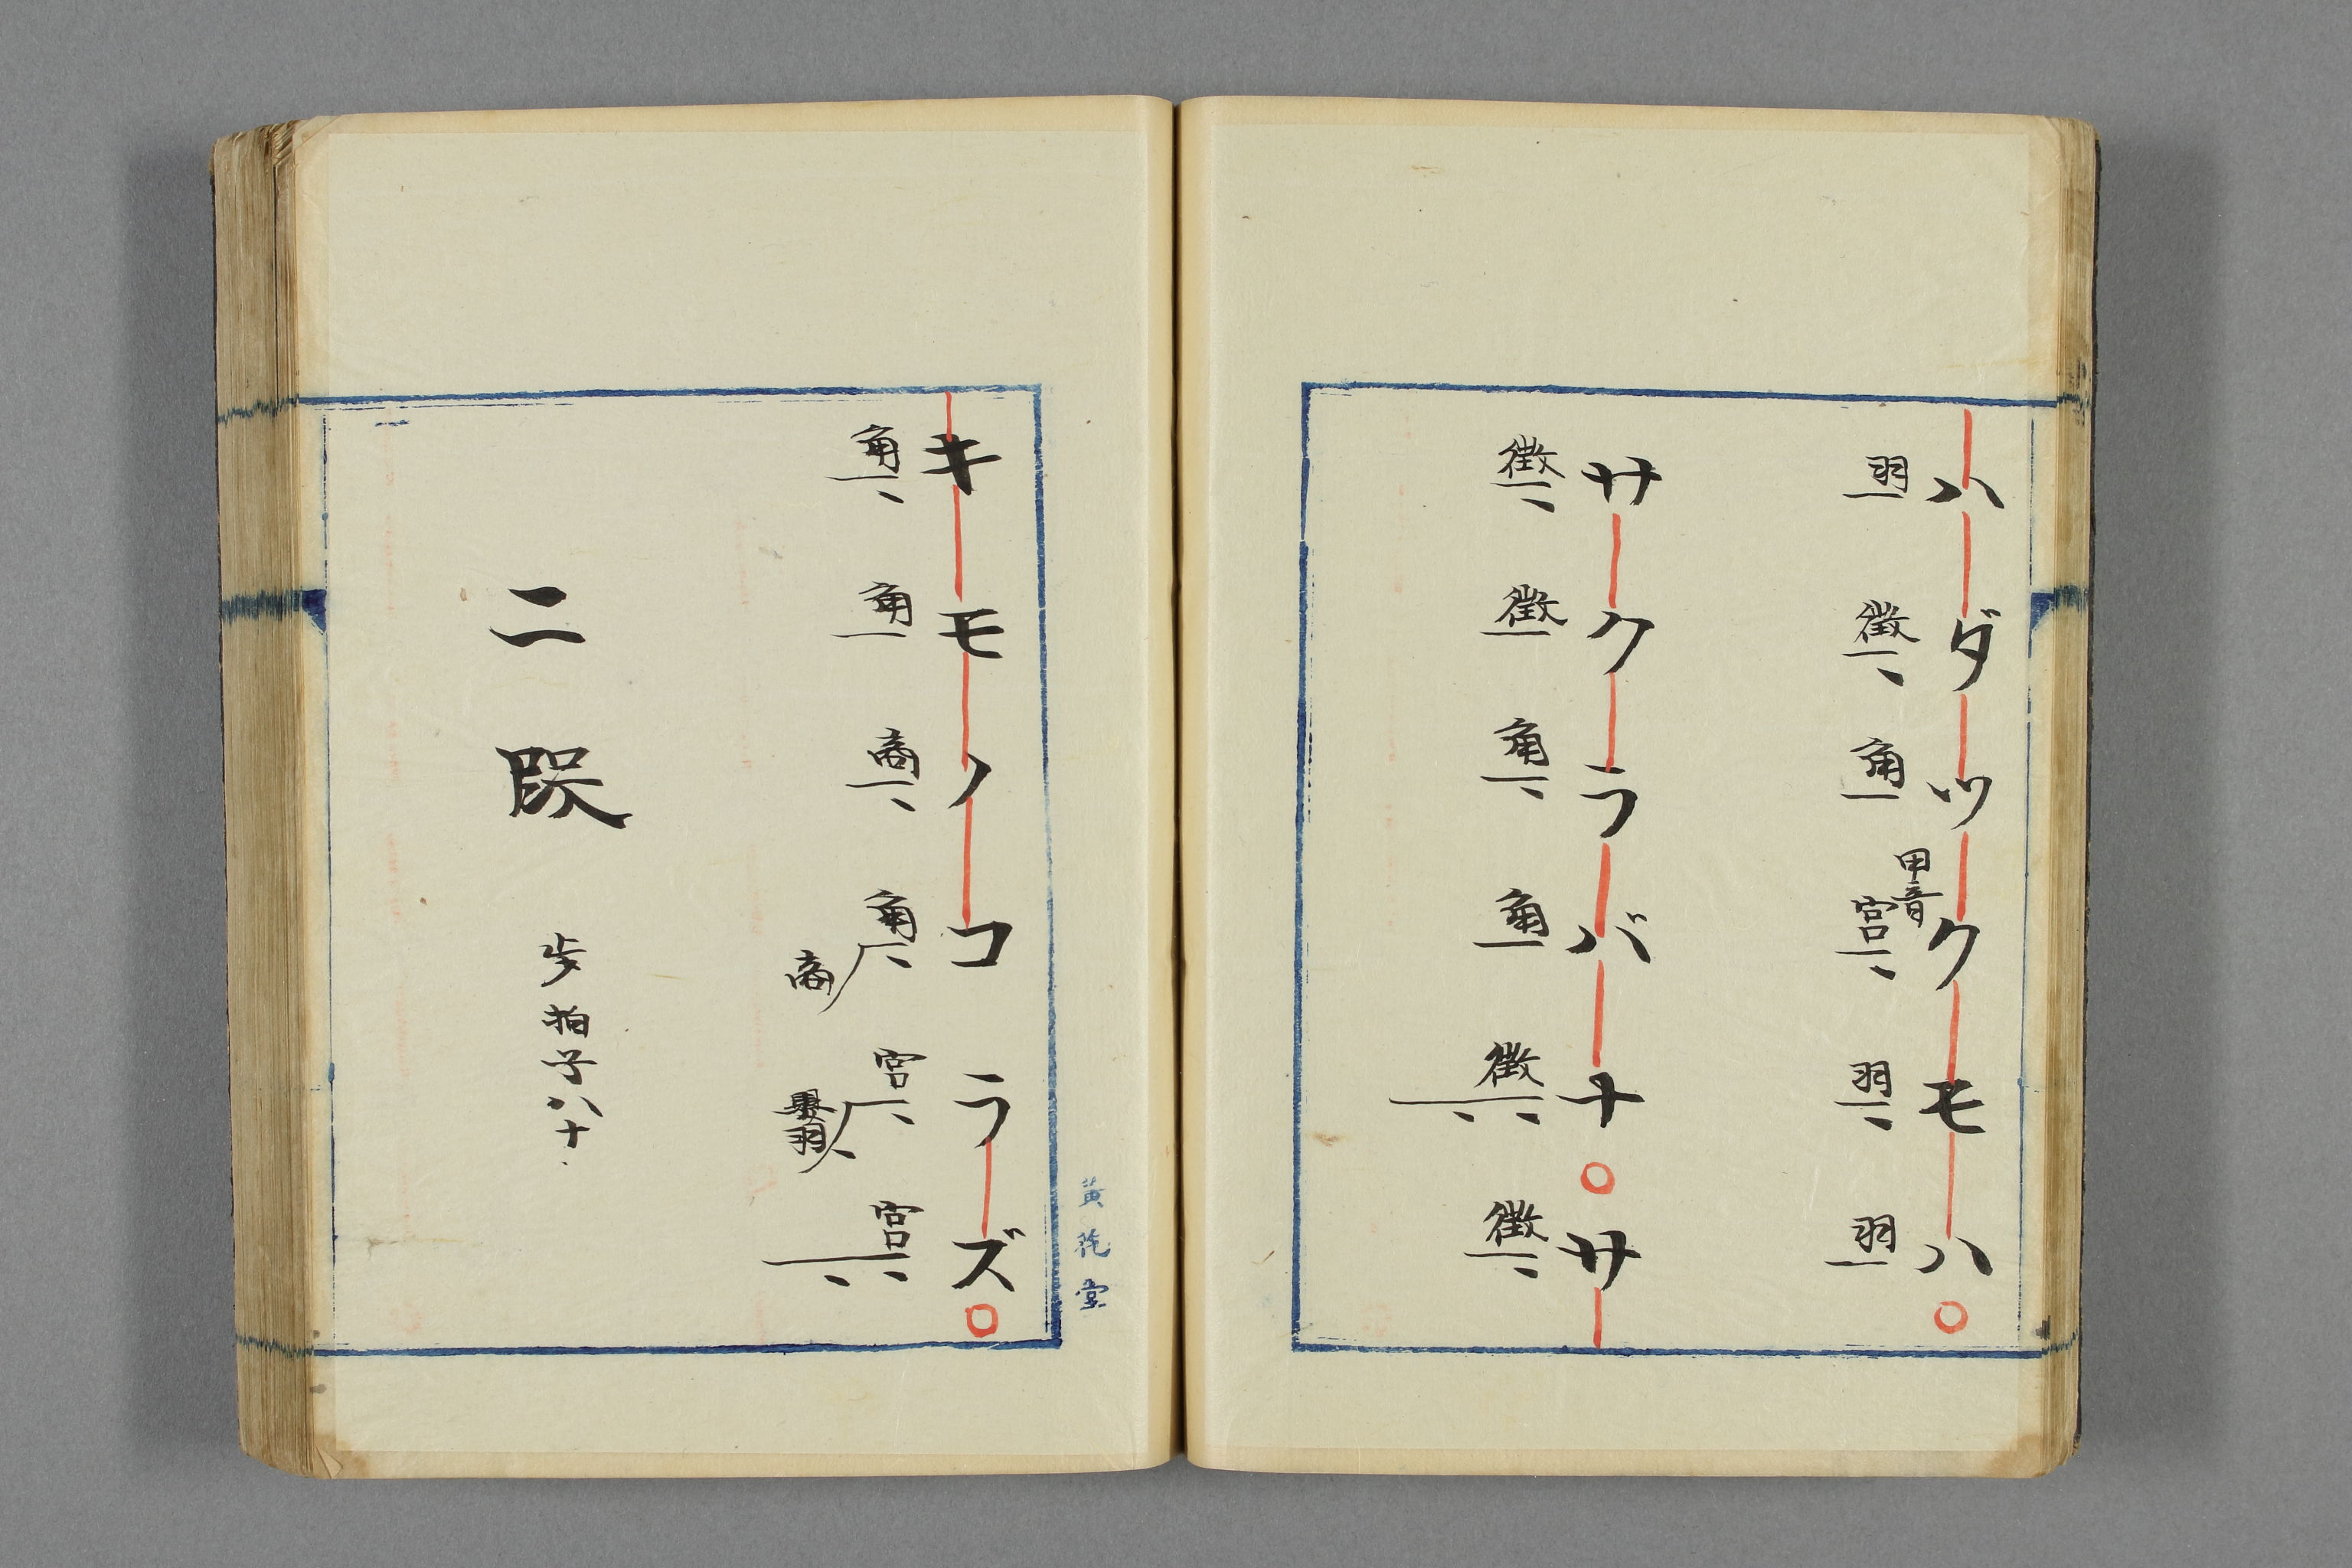 ハダツクモハ
羽 徴 角 甲音 宮 羽 羽
サクラバナサ
徴 徴 角 角 徴 徴
キモノコラズ
角 角 商 角 商 宮 羽 宮
二段
歩拍子八十
黄花堂